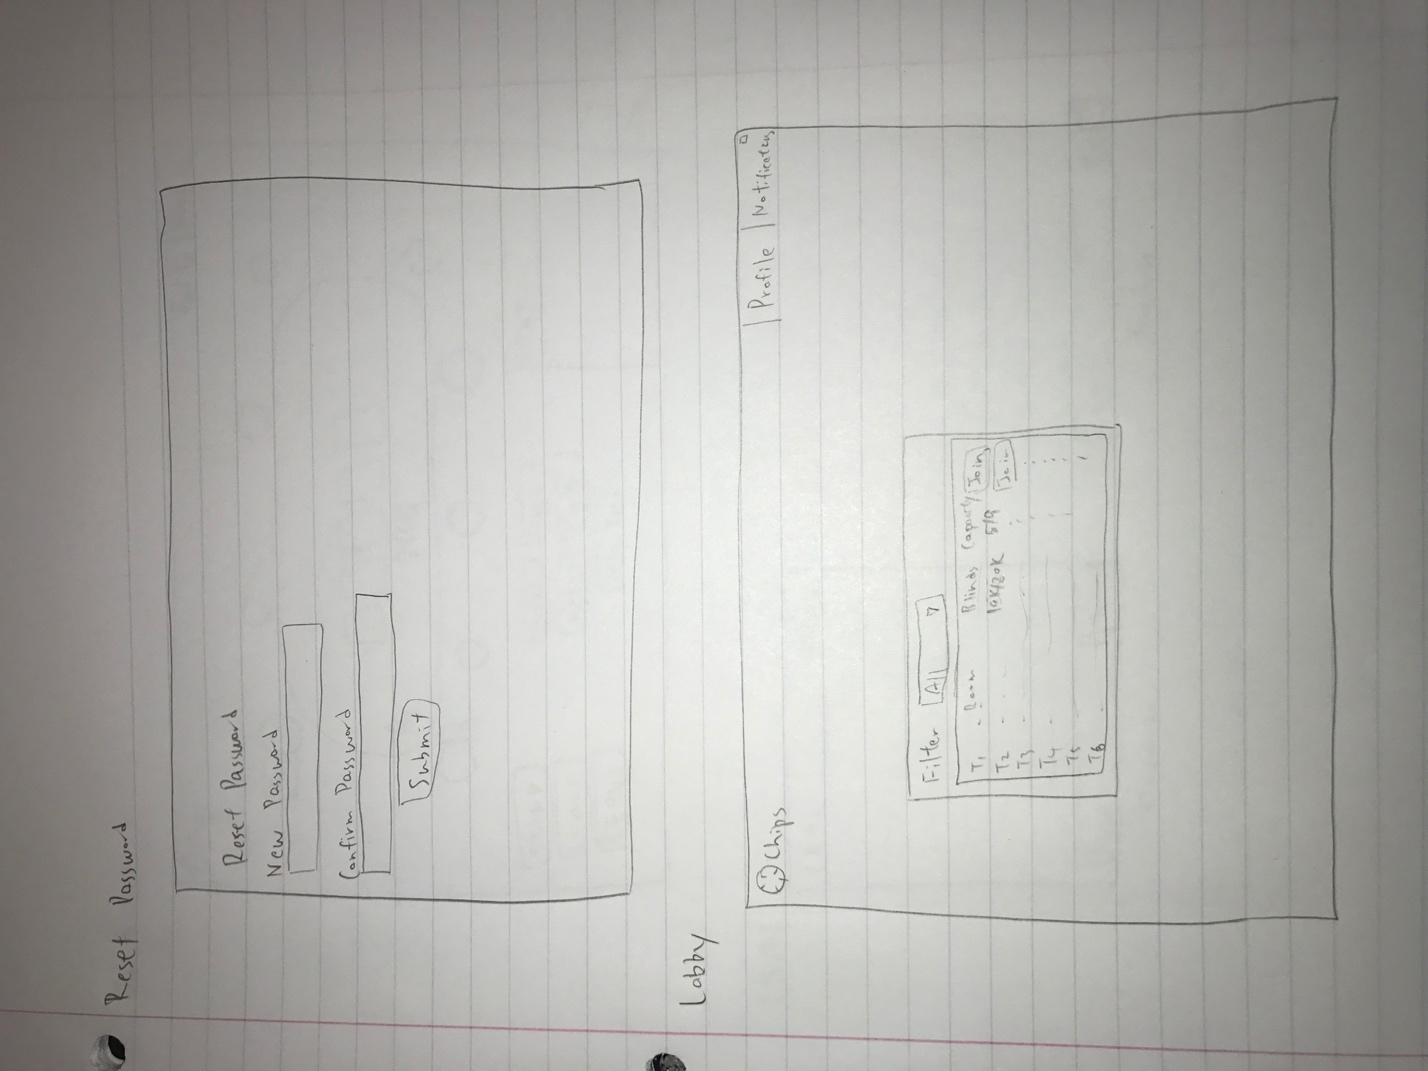 Reset Password
Reset Password
New Password
Confirm Password
Submit
Lobby
Chips | Profile | Notifications
Filter All
T1 - Room Blinds Capacity Join
T2 - 10K/20K 5/9 Join
T3 -
T4 -
T5 -
T6 -